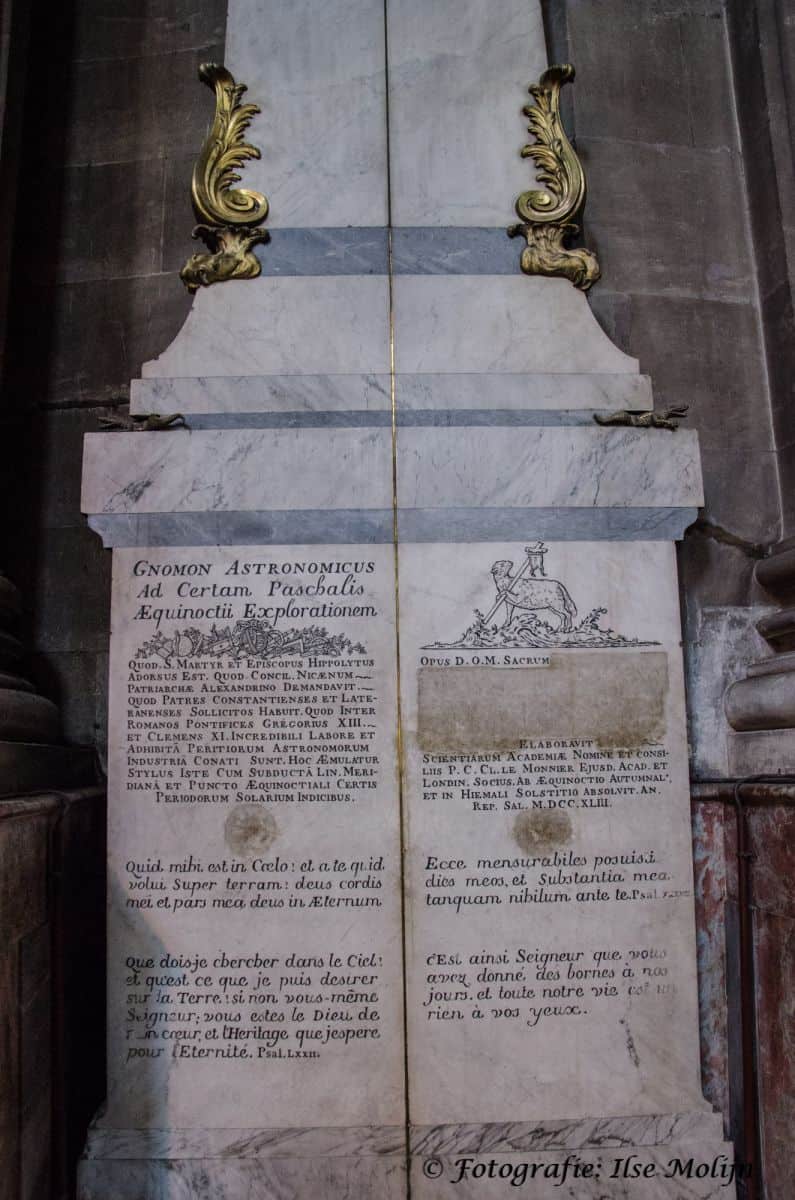 GNOMON ASTRONOMICUS
Ad Certam Paschalis
Æquinoctii Explorationem
QUOD. S. MARTYR ET EPISCOPUS HIPPOLYTUS
ADORSUS EST. QUOD CONCIL. NICÆNUM
PATRIARCHÆ ALEXANDRINO DEMANDAVIT.
QUOD PATRES CONSTANTIENSES ET LATE-
RANENSES SOLLICITOS HABUIT. QUOD INTER
ROMANOS PONTIFICES GREGORIUS XIII.
ET CLEMENS XI. INCREDIBILI LABORE ET
ADHIBITÂ PERITIORUM ASTRONOMORUM
INDUSTRIÂ CONATI SUNT. HOC ÆMULATUR
STYLUS ISTE CUM SUBDUCTÂ LIN. MERI-
DIANÂ ET PUNCTO ÆQUINOCTIALI CERTIS
PERIODORUM SOLARIUM INDICIBUS.
Quid mihi est in Cœlo: et a te quid
volui Super terram: deus cordis
mei et pars mea deus in Æternum
Que dois-je chercher dans le Ciel:
et qu'est ce que je puis desirer
sur la Terre: si non vous-même
Seigneur; vous estes le Dieu de
cœur, et l'Heritage que j'espere
pour l'Eternité. Psal. LXXII.
OPUS D.O.M. SACRUM
ELABORAVIT
SCIENTIARUM ACADEMIÆ NOMINE ET CONSI-
LIIS P. C. CL. LE MONNIER EJUSD. ACAD. ET
LONDIN. SOCIUS. AB ÆQUINOCTIO AUTUMNAL'.
ET IN HIEMALI SOLSTITIO ABSOLVIT. AN.
REP. SAL. M.DCC.XLIII.
Ecce mensurabiles posuisti
dies meos, et Substantia mea
tanquam nihilum ante te. Psal.
c'Est ainsi Seigneur que vous
avez donné des bornes à nos
jours. et toute notre vie est un
rien à vos yeux.
© Fotografie: Ilse Molijn